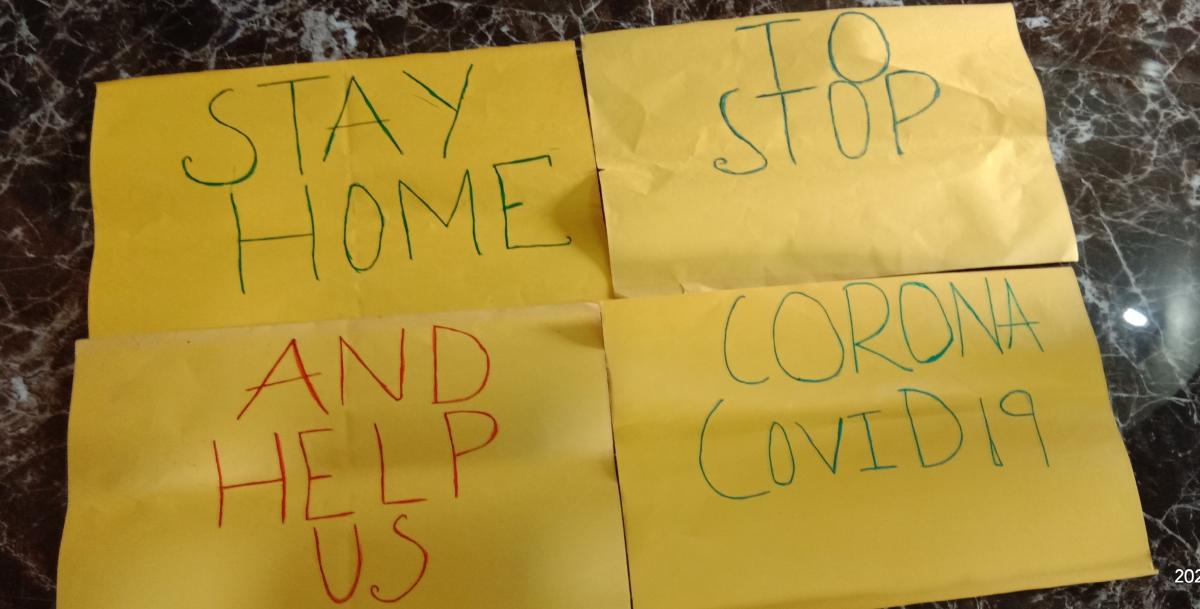 STAY
HOME
TO
STOP
AND
HELP
US
CORONA
COVID19